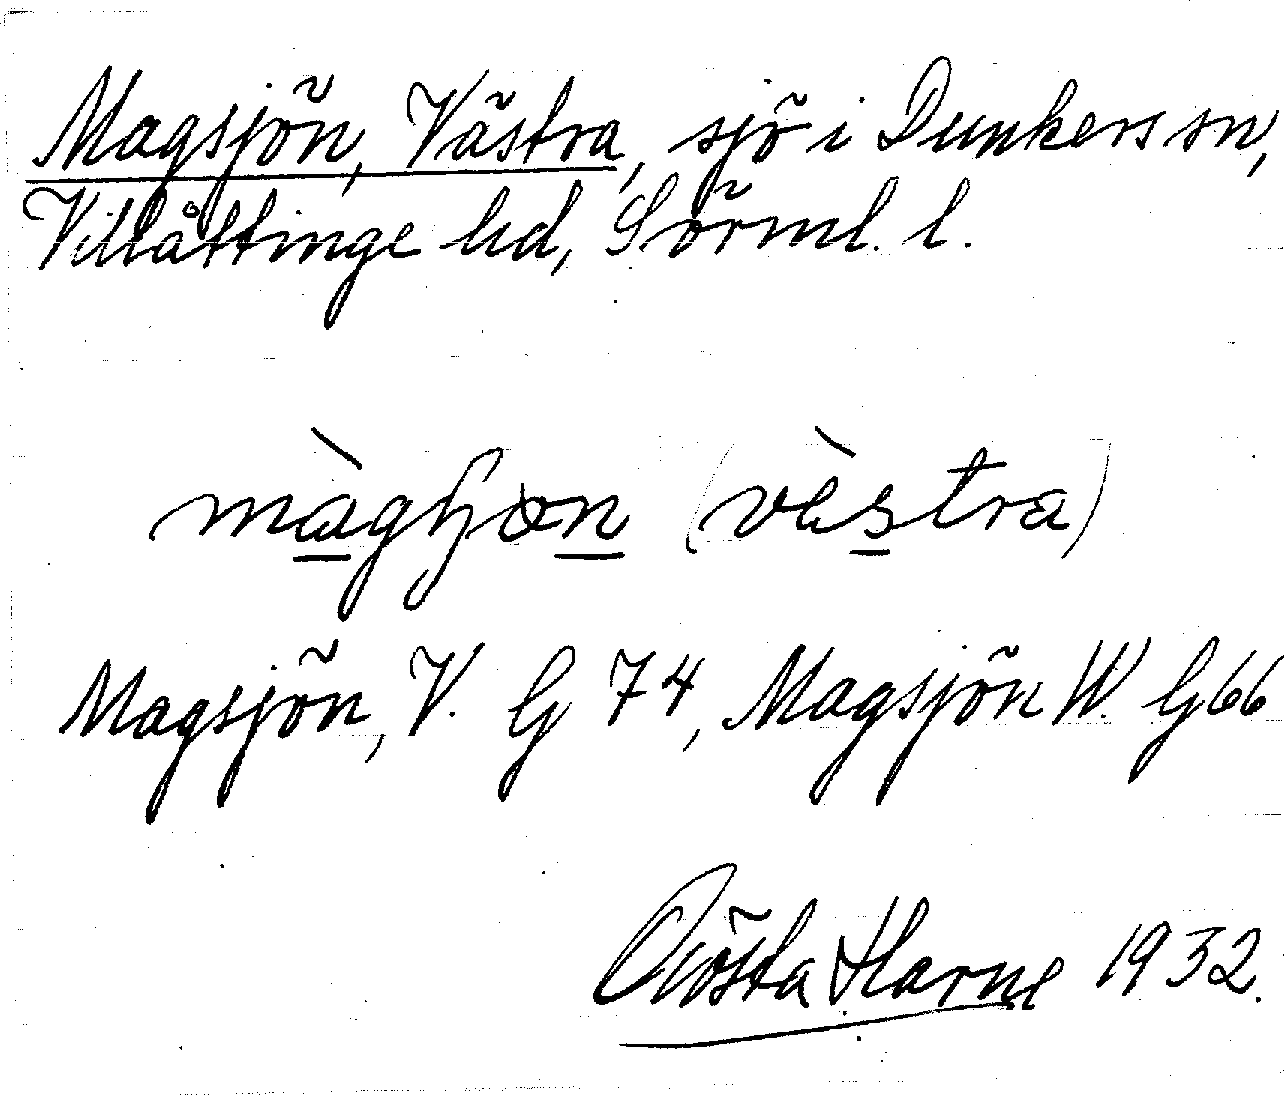 Magsjön, Västra, sjö i Dunkers sn,
Villåttinge hd, Sörml. l.
(västra)
Magsjön, V. G 74, Magsjön W. G 66
Gösta Harne 1932.